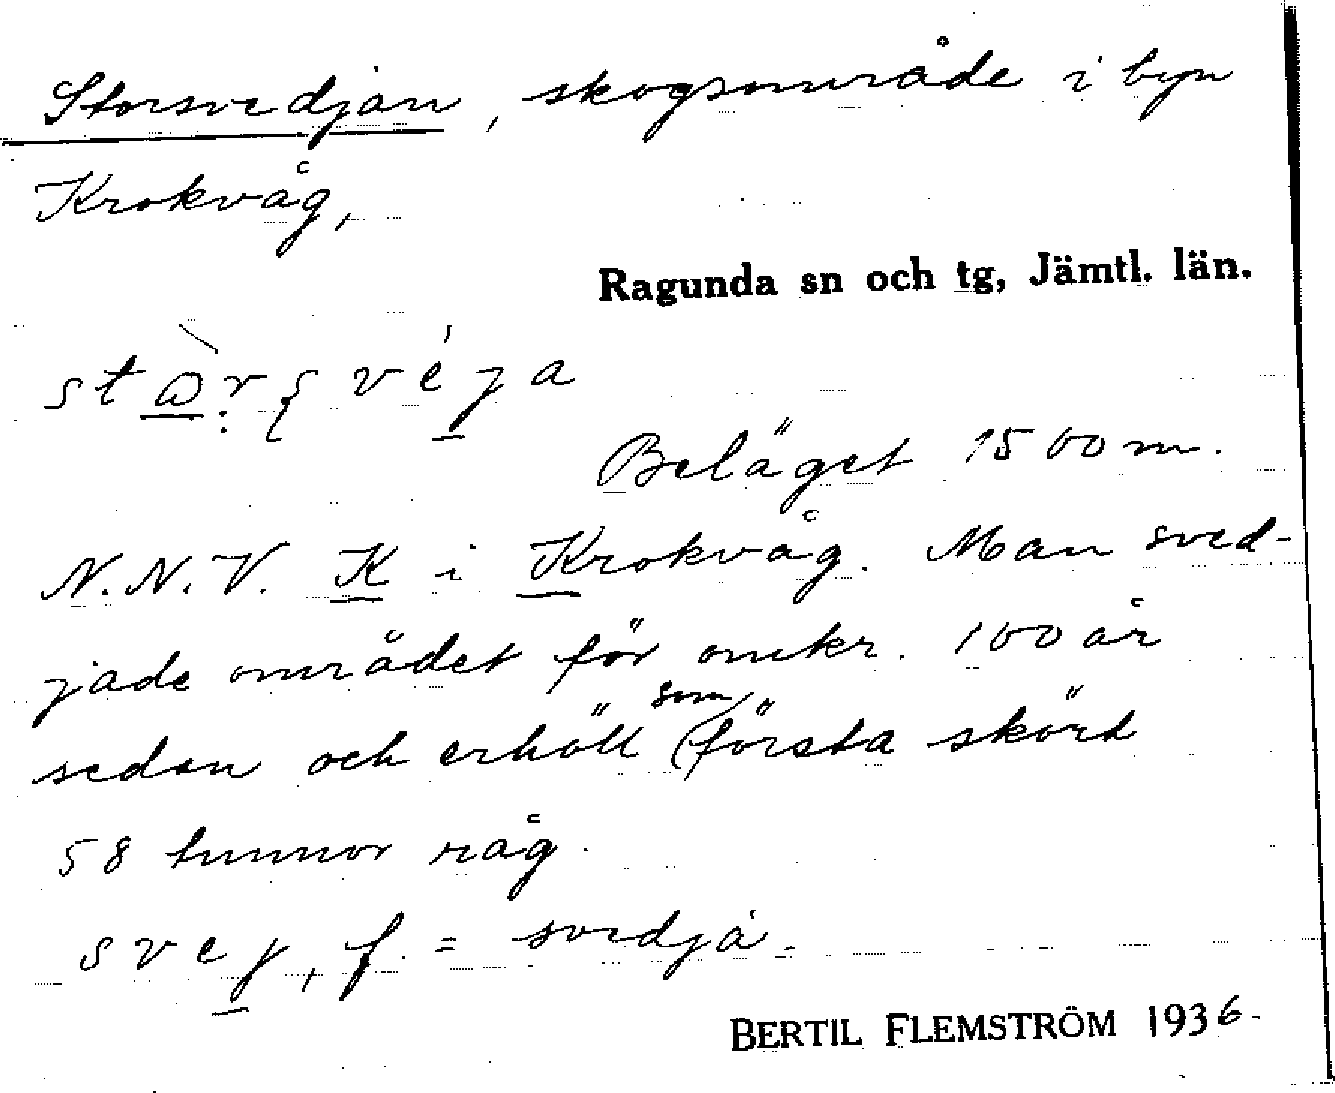 Storsvedjan, skogsområde i byn
Krokvåg,
Ragunda sn och tg, Jämtl. län.
Beläget 1500 m.
N.N.V. K i Krokvåg. Man sved-
jade området för omkr. 100 år
sedan och erhöll som första skörd
58 tunnor råg.
svej, f. = svedja.
BERTIL FLEMSTRÖM 1936